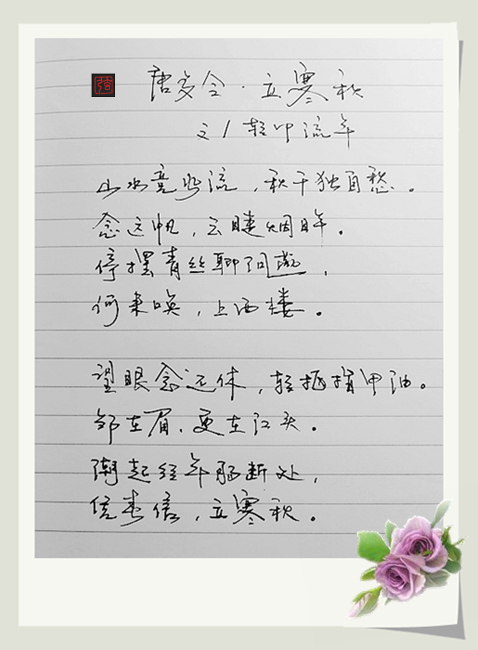 唐多令·立寒秋
文/轻叩流年
山水竟流,秋千独自愁。
念远帆,云睫烟眸。
停摆青丝聊问,
何来唤,上西楼。
望眼念还休,轻抚指甲油。
在眉,更在江头。
潮起经年肠断处,
信信,立寒秋。